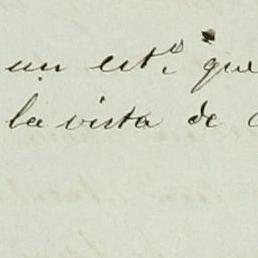 un est.º que
la vista de